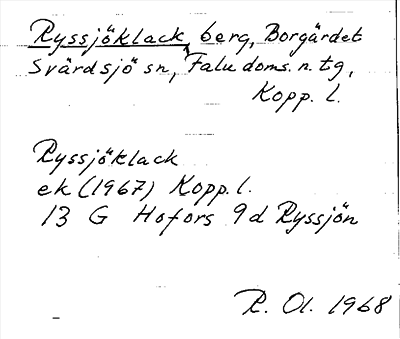 Ryssjöklack, berg, Borgärdet
Svärdsjö sn, Falu doms. n. tg,
Kopp. l.
Ryssjöklack
ek (1967) Kopp. l.
13 G Hofors 9d Ryssjön
R. Ol. 1968